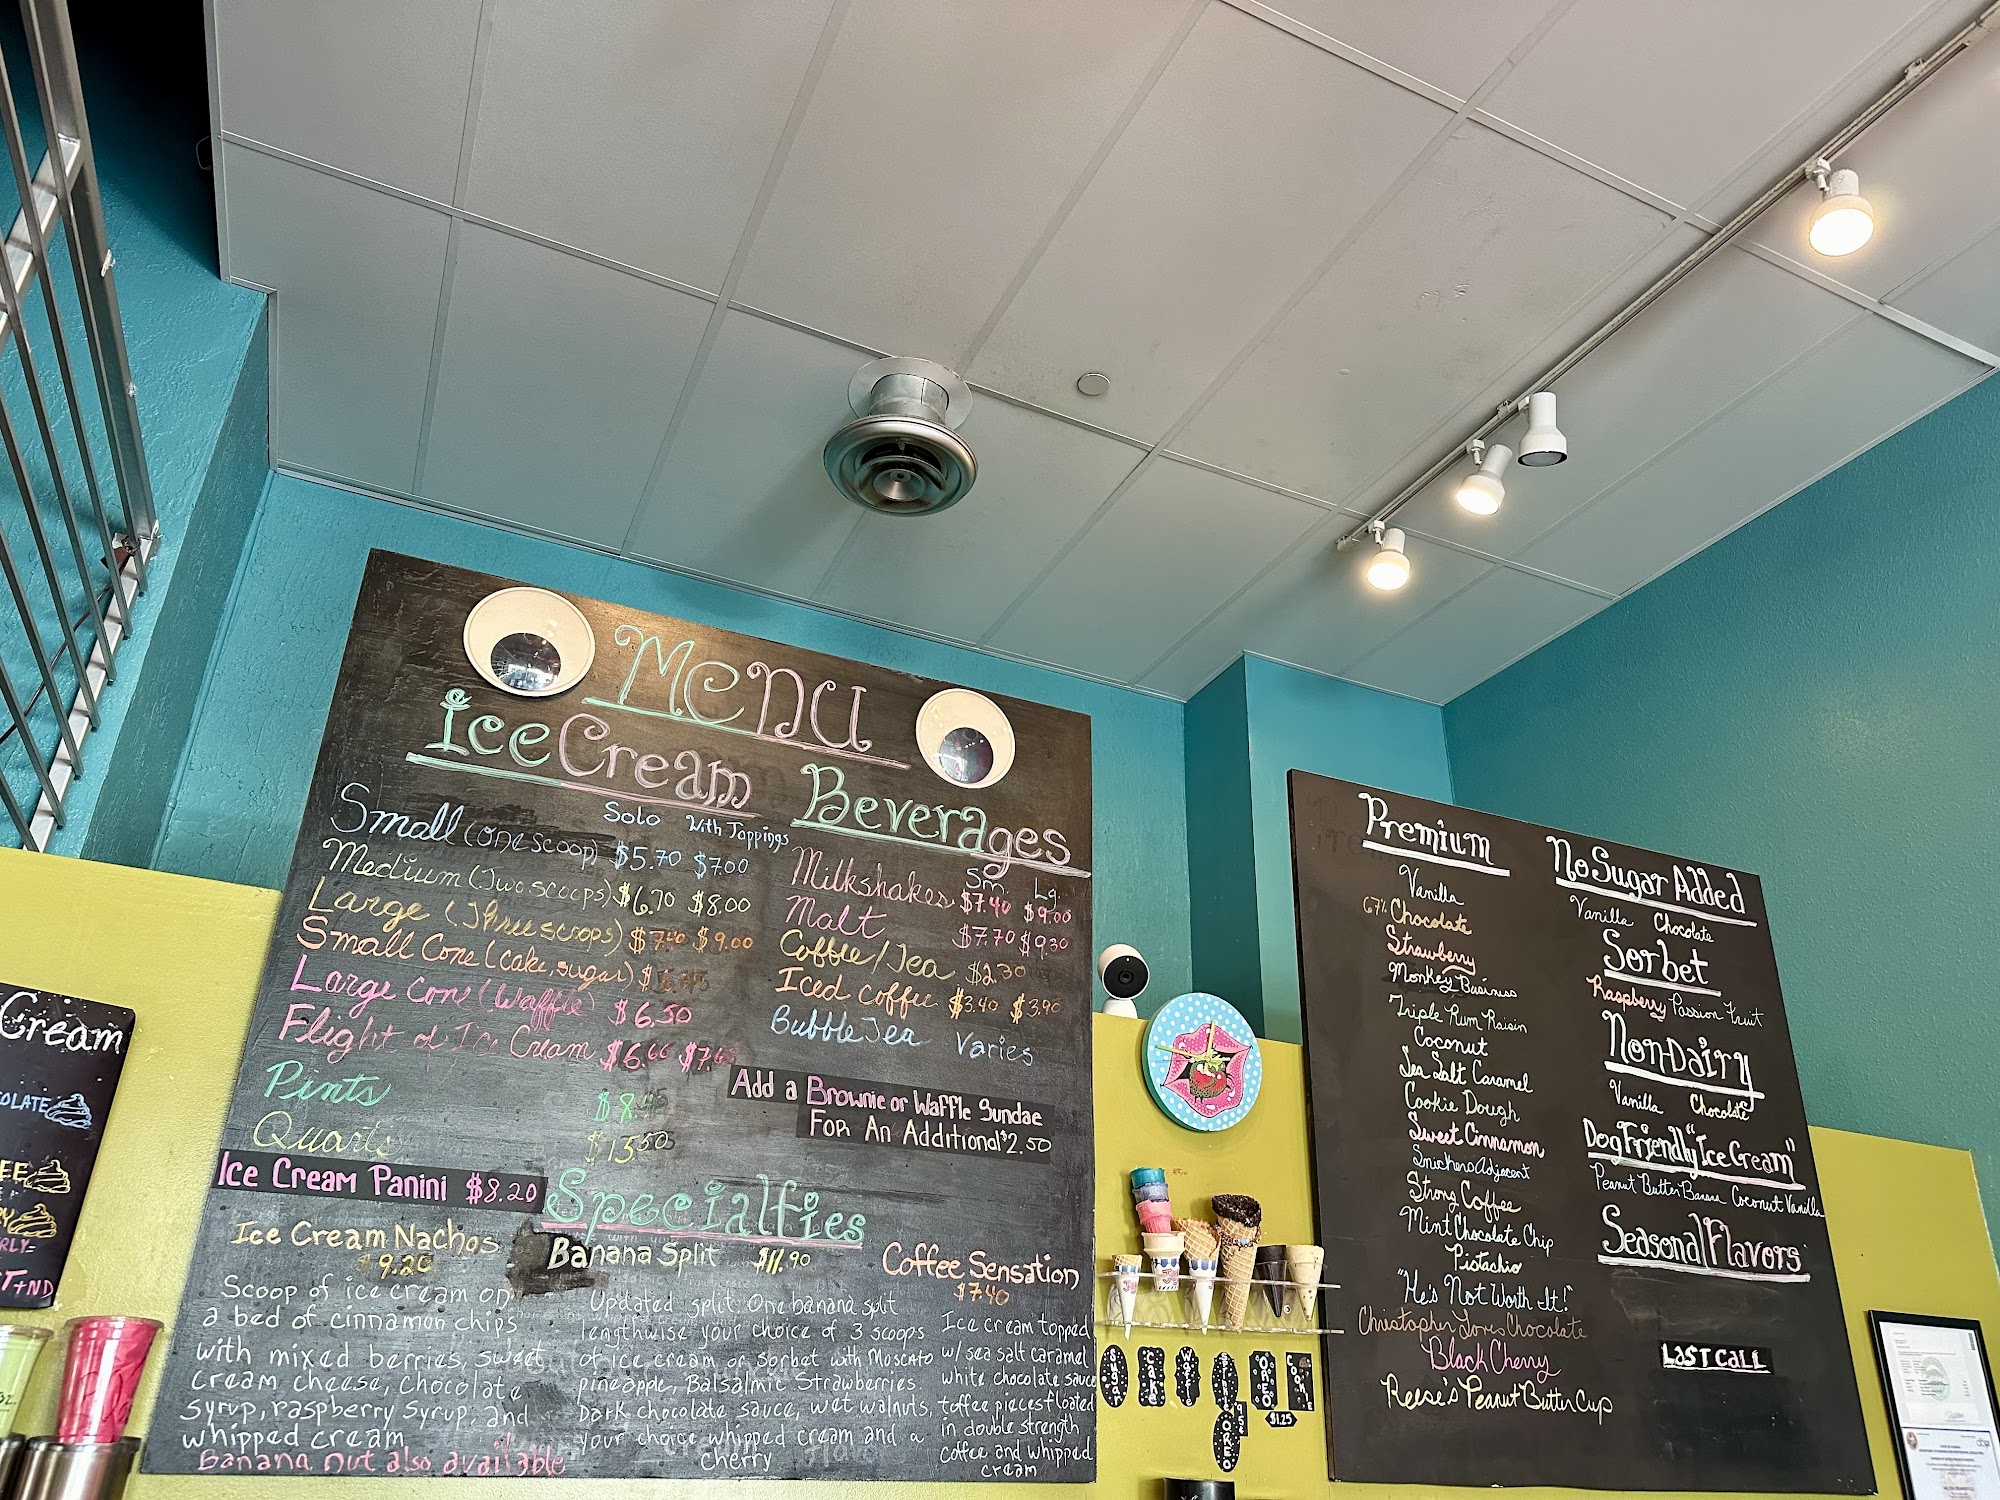 Cream
OLATE
EE
RLY=
T+ND
Menu
Ice Cream
Solo With Toppings
Small (one scoop) $5.70 $7.00
Medium (Two scoops) $6.70 $8.00
Large (Three scoops) $7.40 $9.00
Small Cone (cake, sugar) $
Large Cone (Waffle) $6.50
Flight of Ice Cream
Pints
Quarts $15.50
Ice Cream Panini $8.20
Beverages
Sm. Lg.
Milkshakes $7.40 $9.00
Malt $7.70 $9.30
Coffee/Tea $2.30
Iced coffee $3.40 $3.90
Bubble Tea Varies
Add a Brownie or Waffle Sundae
For An Additional $2.50
Specialties
Ice Cream Nachos
$9.20
Scoop of ice cream on
a bed of cinnamon chips
with mixed berries, sweet
cream cheese, chocolate
syrup, raspberry syrup, and
whipped cream
Banana nut also available
Banana Split $11.90
Updated split: One banana split
lengthwise your choice of 3 scoops
of ice cream or sorbet with Moscato
pineapple, Balsalmic Strawberries
Dark chocolate sauce, wet walnuts,
your choice whipped cream and a
cherry
Coffee Sensation
$7.40
Ice cream topped
w/ sea salt caramel
white chocolate sauce
toffee pieces floated
in double strength
coffee and whipped
cream
Sugar
Cake
Waffle
OREO
Cookie
$1.25
OREO
Premium
Vanilla
67% Chocolate
Strawberry
Monkey Business
Triple Rum Raisin
Coconut
Sea Salt Caramel
Cookie Dough
Sweet Cinnamon
Snickers Adjacent
Strong Coffee
Mint Chocolate Chip
Pistachio
"He's Not Worth It!"
Christopher Loves Chocolate
Black Cherry
Reese's Peanut Butter Cup
No Sugar Added
Vanilla Chocolate
Sorbet
Raspberry Passion Fruit
Non-Dairy
Vanilla Chocolate
Dog Friendly "Ice Cream"
Peanut Butter Banana Coconut Vanilla
Seasonal Flavors
Last Call